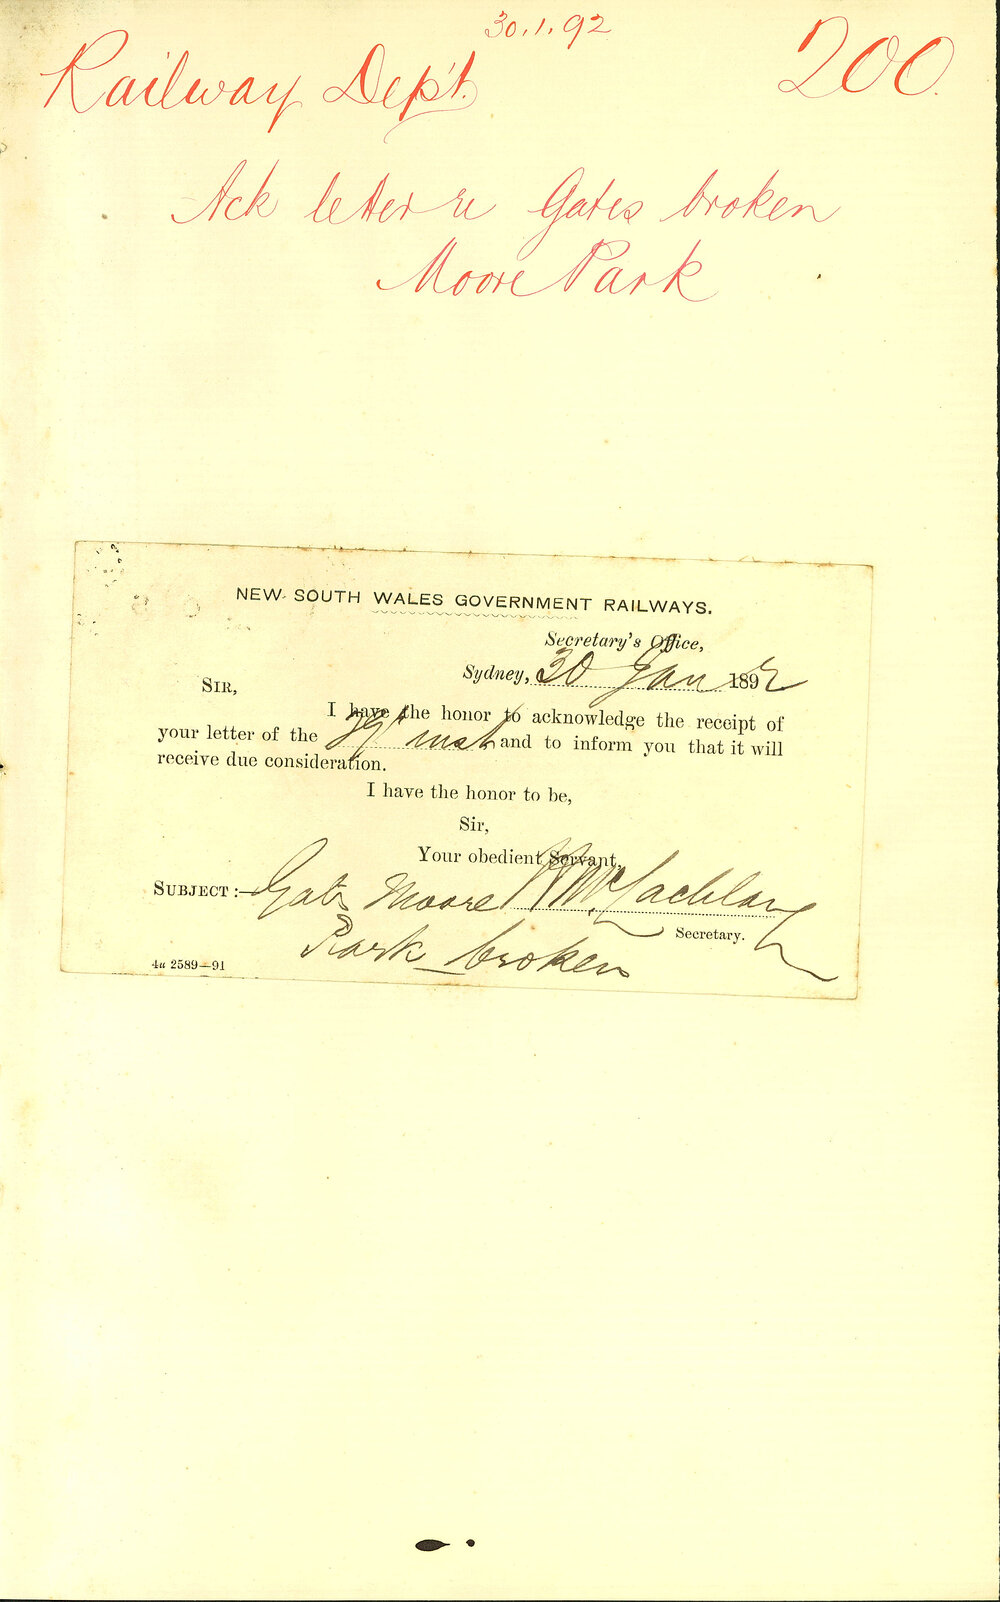 30.1.92
Railway Dep't. 200.
Ack letter re Gates broken
Moore Park
NEW SOUTH WALES GOVERNMENT RAILWAYS.
Secretary's Office,
Sydney, 30 Jan 1892
SIR,
I have the honor to acknowledge the receipt of
your letter of the 29th inst and to inform you that it will
receive due consideration.
I have the honor to be,
Sir,
Your obedient Servant,
SUBJECT:— Gates Moore H McLachlan
Secretary.
Park broken
4u 2589—91